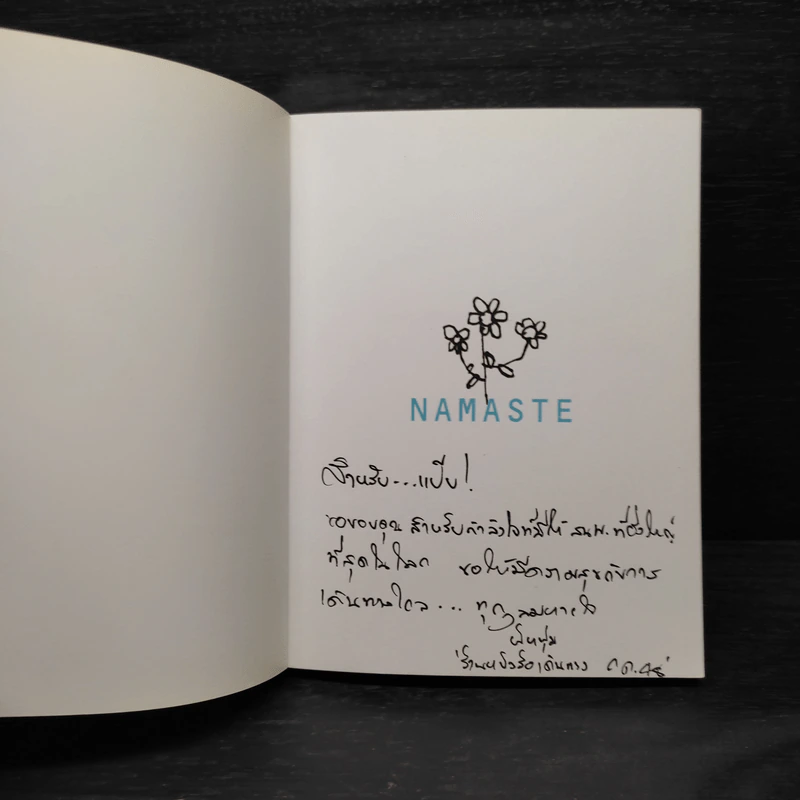 NAMASTE
สำหรับ...แป๊บ!
ขอขอบคุณ สำหรับกำลังใจที่มีให้ สนพ. ที่ยิ่งใหญ่
ที่สุดในโลก ขอให้มีความสุขกับการ
เดินทางไกล... ทุกๆลมหายใจ
'ร้านหนังสือเดินทาง